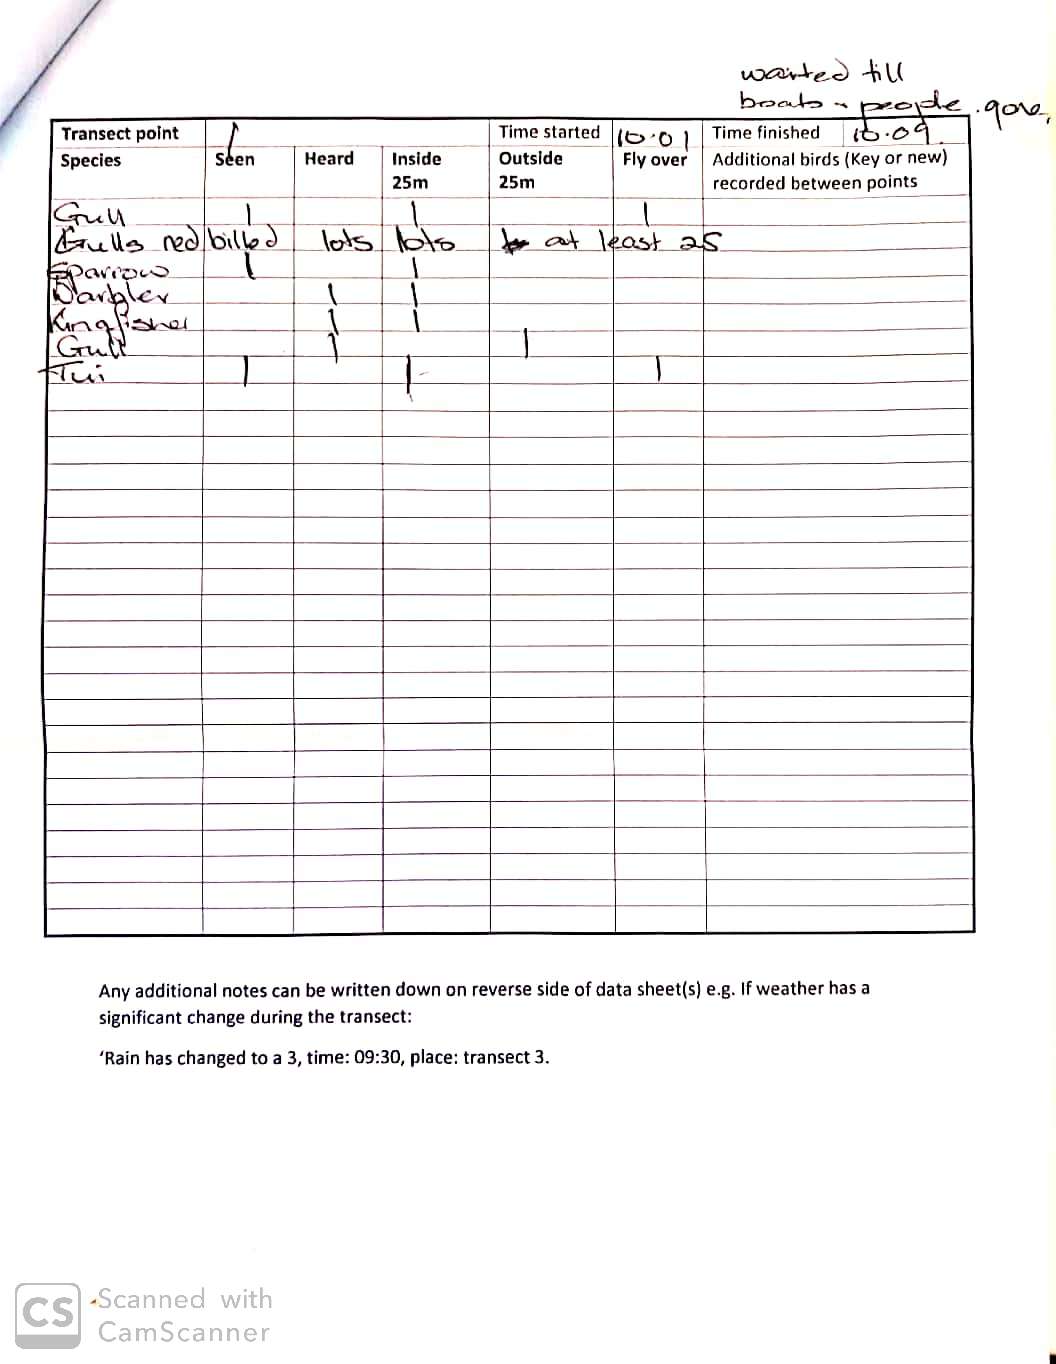 waited till
boats + people . gone,
Transect point 1 Time started 10.01 Time finished 10.09
Species Seen Heard Inside 25m Outside 25m Fly over Additional birds (Key or new) recorded between points
Gull 1 1 1
Gulls red billed lots lots at least 25
Sparrow 1 1
Warbler 1 1
Kingfisher 1 1
Gull 1 1
Tui 1 1 1
Any additional notes can be written down on reverse side of data sheet(s) e.g. If weather has a
significant change during the transect:
‘Rain has changed to a 3, time: 09:30, place: transect 3.
CS Scanned with
CamScanner